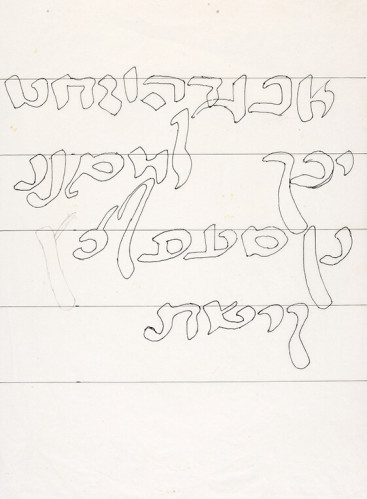 אבגדהוזחט
יכך למםנ
נןסעפףצץ
קרשת